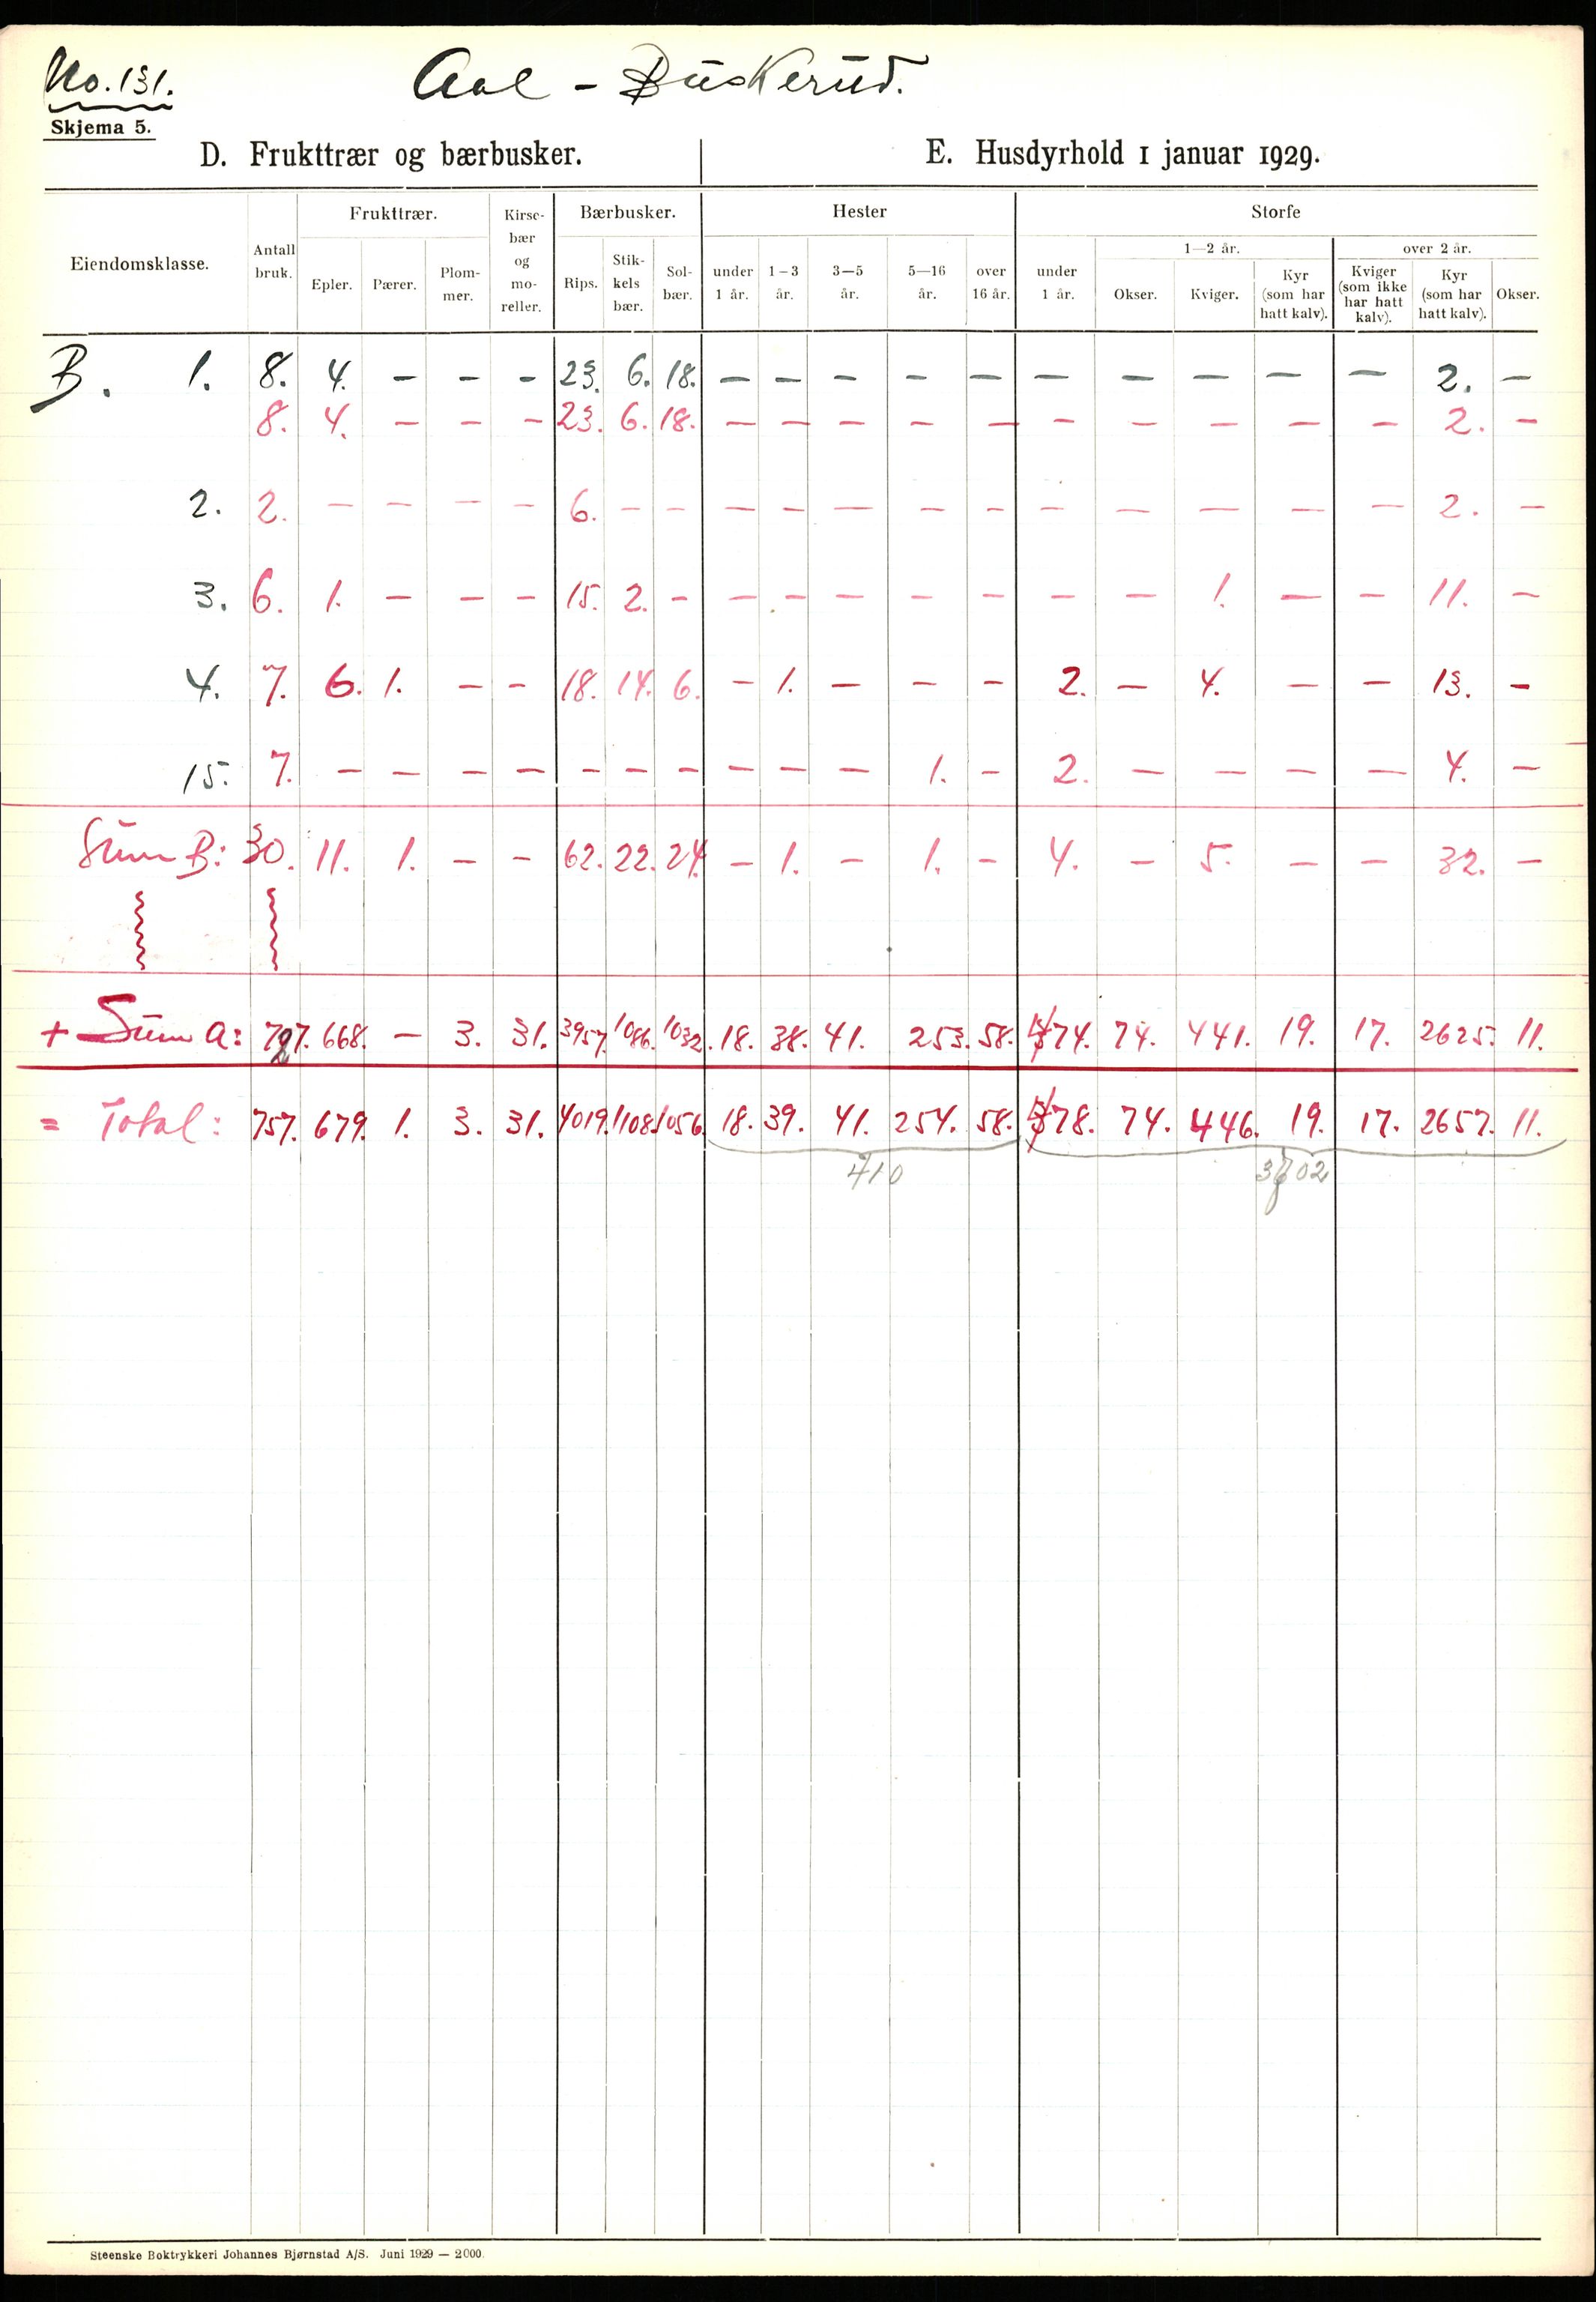 No. 131.
Aal - Buskerud.
Skjema 5.
D. Frukttrær og bærbusker.
E. Husdyrhold 1 januar 1929.
Eiendomsklasse.
Antall bruk.
Frukttrær.
Epler.
Pærer.
Plom- mer.
Kirse- bær og mo- reller.
Bærbusker.
Rips.
Stik- kels bær.
Sol- bær.
Hester
under 1 år.
1–3 år.
3–5 år.
5–16 år.
over 16 år.
Storfe
under 1 år.
1–2 år.
Okser.
Kviger.
Kyr (som har hatt kalv).
over 2 år.
Kviger (som ikke har hatt kalv).
Kyr (som har hatt kalv).
Okser.
B. 1. 8. 4. – – – 23. 6. 18. – – – – – – – – – – 2. –
8. 4. – – – 23. 6. 18. – – – – – – – – – – 2. –
2. 2. – – – – 6. – – – – – – – – – – – – 2. –
3. 6. 1. – – – 15. 2. – – – – – – – – 1. – – 11. –
4. 7. 6. 1. – – 18. 14. 6. – 1. – – – 2. – 4. – – 13. –
15. 7. – – – – – – – – – – 1. – 2. – – – – 4. –
Sum B: 30. 11. 1. – – 62. 22. 24. – 1. – 1. – 4. – 5. – – 32. –
+ Sum A: 727. 668. – 3. 31. 3957. 1086. 1032. 18. 38. 41. 253. 58. 74. 74. 441. 19. 17. 2625. 11.
= Total: 757. 679. 1. 3. 31. 4019. 1108. 1056. 18. 39. 41. 254. 58. 78. 74. 446. 19. 17. 2657. 11.
410
Steenske Boktrykkeri Johannes Bjørnstad A/S. Juni 1929 — 2000.